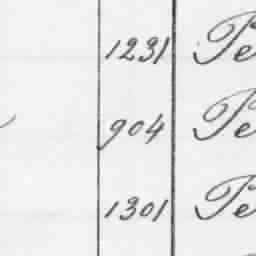 1231 Pe
904 Pe
1301 Pe